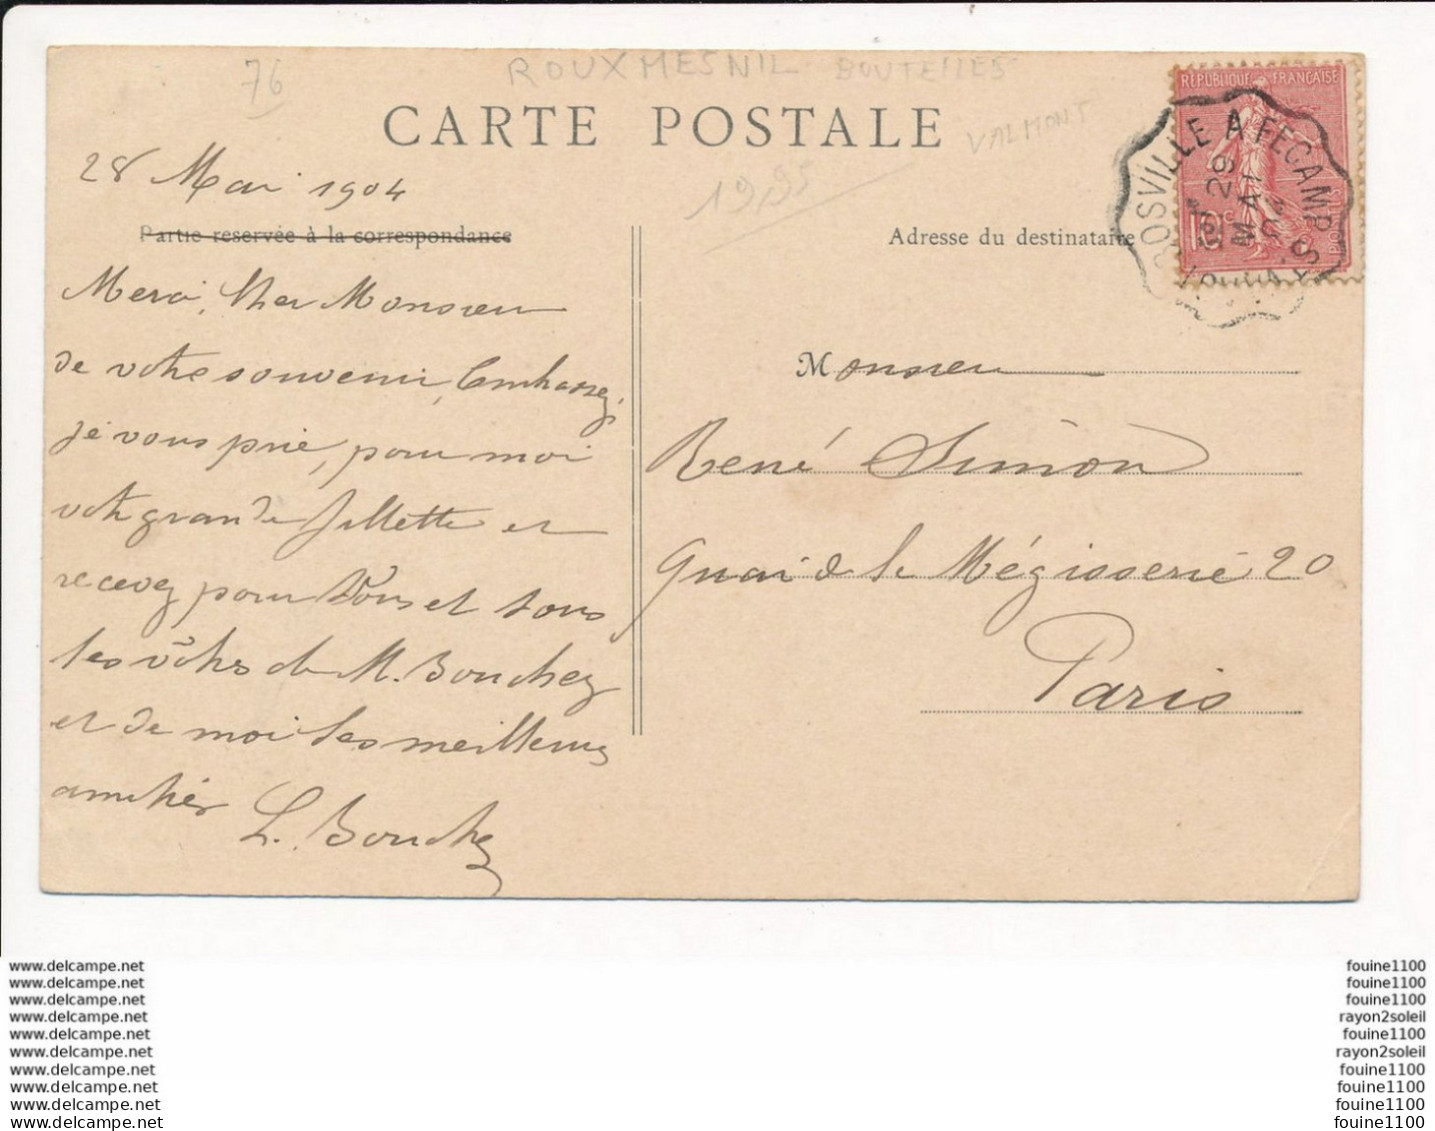 76
ROUXMESNIL BOUTEILLES
CARTE POSTALE
VALMONT
19,95
28 Mai 1904
Partie reservée à la correspondance
Merci, Cher Monsieur
de votre souvenir, Embrassez,
je vous prie, pour moi
votre grande fillette et
recevez pour Vous et tous
les vôtres de M. Bouchez
et de moi les meilleures
amitiés
L. Bouchez
REPUBLIQUE FRANÇAISE
10c
POSTES
A FECAMP
29
MAI
04
Adresse du destinataire
Monsieur
René Simon
Quai de la Mégisserie 20
Paris
www.delcampe.net
www.delcampe.net
www.delcampe.net
www.delcampe.net
www.delcampe.net
www.delcampe.net
www.delcampe.net
www.delcampe.net
www.delcampe.net
www.delcampe.net
fouine1100
fouine1100
fouine1100
rayon2soleil
fouine1100
rayon2soleil
fouine1100
fouine1100
fouine1100
fouine1100